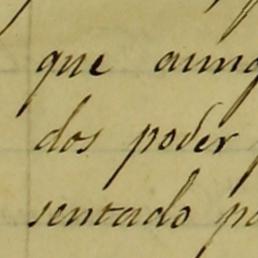 que aunq
dos poder
sentado pa